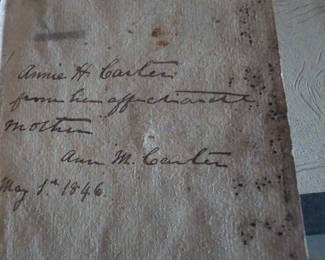 Annie H Carter
from her affectionate
mother
Ann M. Carter
May 1st 1846.